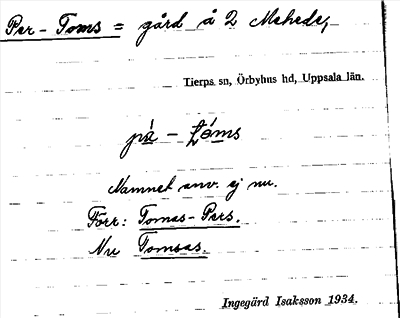 Per-Toms = gård å 2 Mehede,
Tierps sn, Örbyhus hd, Uppsala län.
pá - tóms
Namnet anv. ej nu.
Förr: Tomas-Pers.
Nu Tomsas.
Ingegärd Isaksson 1934.